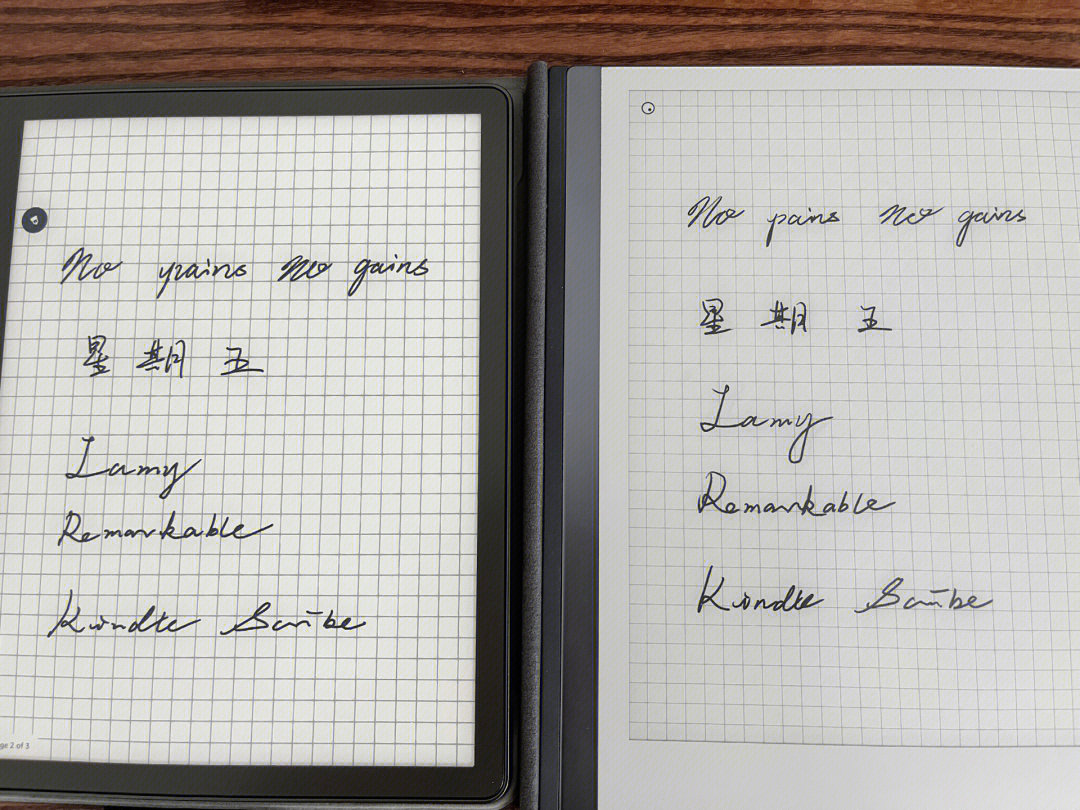 No pains No gains
星期五
Lamy
Remarkable
Kindle Scribe
ge 2 of 3
No pains No gains
星期五
Lamy
Remarkable
Kindle Scribe